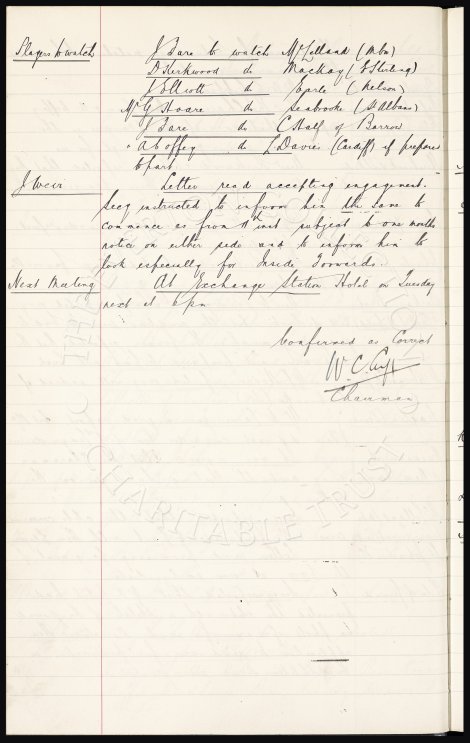 Players to watch J Bare to watch McLelland (Mbro)
D Kirkwood do Mackay (E Stirling)
J Elliott do Earle (Nelson)
Mr G Hoare do Seabrooke (St Albans)
J Bare do C Half of Barrow
" A Coffey do L Davies (Cardiff) if prepared
to part
J Weir Letter read accepting engagement.
Secy instructed to inform him the same to
commence as from 11th inst subject to one months
notice on either side and to inform him to
look especially for Inside Forwards.
Next Meeting At Exchange Station Hotel on Tuesday
next at 6 pm
Confirmed as Correct
W. C. Cuff
Chairman
THE
CHARITABLE TRUST